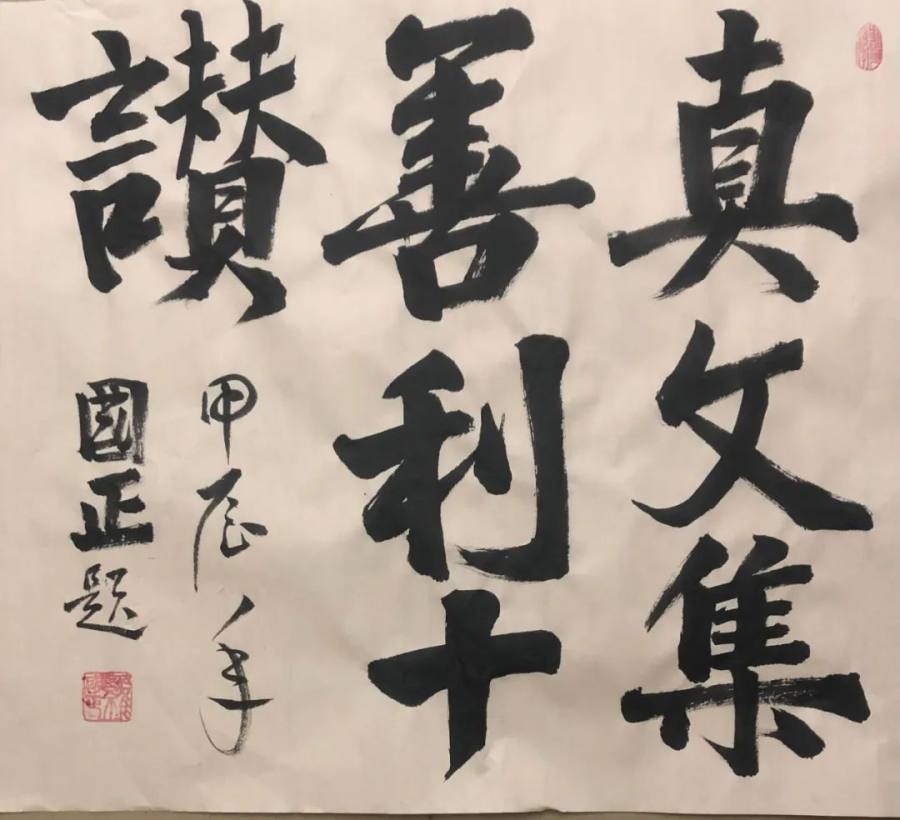 真文集
善利十
讃
甲辰年
國正題